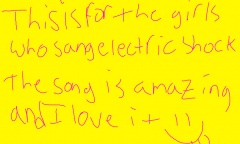 This is for the girls
who sang electric shock
The song is amazing
and I love it !!